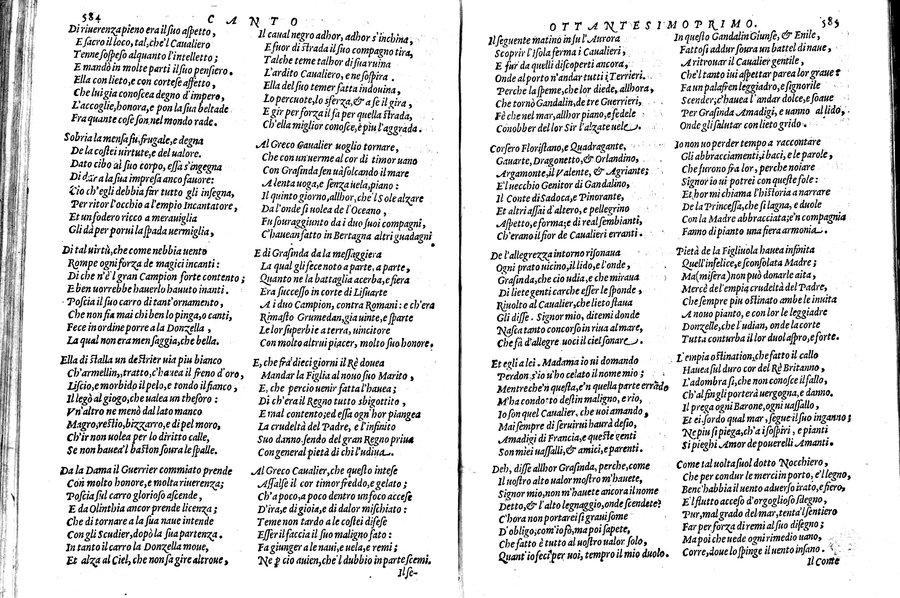 584
CANTO
Di riuerenza pieno era il suo aspetto,
E sacro il loco, tal, che'l Caualiero
Tenne sospeso alquanto l'intelletto;
E mandò in molte parti il suo pensiero.
Ella con lieto, e con cortese affetto,
Che lui gia conoscea degno d'impero,
L'accoglie, honora, e pon la sua beltade
Fra quante cose son, nel mondo rade.
Sobria la mensa fu, frugale, e degna
De la costei uirtute, e del ualore.
Dato cibo al suo corpo, essa s'ingegna
Di dar a la sua impresa anco fauore:
Ciò ch'egli debbia far tutto gli insegna,
Per ritor l'occhio a l'empio Incantatore,
Et un fodero ricco a merauiglia
Gli dà per porui la spada uermiglia,
Di tal uirtù, che come nebbia uento
Rompe ogni forza de magici incanti:
Di che n'è'l gran Campion forte contento;
E ben uorrebbe hauerlo hauuto inanti.
Poscia il suo carro di tant'ornamento,
Che non fia mai chi ben lo pinga, o canti,
Fece in ordine porre a la Donzella,
La qual non era men saggia, che bella.
Ella di stalla un destrier uia piu bianco
Ch'armellin, tratto, c'hauea il freno d'oro,
Liscio, e morbido il pelo, e tondo il fianco,
Il legò al giogo, che ualea un thesoro:
Vn'altro ne menò dal lato manco
Magro, restio, bizzarro, e di pel moro,
Ch'ir non uolea per lo diritto calle,
Se non hauea'l baston soura le spalle.
Da la Dama il Guerrier commiato prende
Con molto honore, e molta riuerenza;
Poscia sul carro glorioso ascende,
E da Olinthia ancor prende licenza;
Che di tornare a la sua naue intende
Con gli Scudier, dopò la sua partenza.
In tanto il carro la Donzella moue,
Et alza al Ciel, che non sa gire altroue,
Il caual negro adhor, adhor s'inchina,
E fuor di strada il suo compagno tira,
Talche teme talhor di sua ruina
L'ardito Caualiero, e ne sospira.
Ella del suo temer fatta indouina,
Lo percuote, lo sferza, & a se il gira,
E gir per forza il fa per quella strada,
Ch'ella miglior conosce, è piu l'aggrada.
Al Greco Caualier uoglio tornare,
Che con un uerme al cor di timor uano
Con Grasinda sen ua solcando il mare
A lenta uoga, e senza uela, piano:
Il quinto giorno, allhor, che'l Sole alzare
Da l'onde si uolea de l'Oceano,
Fu souraggiunto da i duo suoi compagni,
C'haueansatto in Bertagna alti guadagni
E di Grasinda da la messaggiera
La qual gli fece noto a parte, a parte,
Quanto ne la battaglia acerba, e fiera
Era successo in corte di Lisuarte
A i duo Campion, contra Romani: e ch'era
Rimasto Grumedan, gia uinte, e sparte
Le lor superbie a terra, uincitore
Con molto altrui piacer, molto suo honore.
E, che fra dieci giorni il Rè douea
Mandar la Figlia al nouo suo Marito,
E, che percio uenir fatta l'hauea;
Di ch'era il Regno tutto sbigottito,
E mal contento; ed essa ogn'hor piangea
La crudeltà del Padre, e l'infinito
Suo danno, sendo del gran Regno priua
Con general pietà di chi l'udiua.
Al Greco Caualier, che questo intese
Assalse il cor timor freddo, e gelato;
Ch'a poco, a poco dentro un foco accese
D'ira, e di gioia, e di dalor mischiato:
Teme non tardo a le costei difese
Esser il faccia il suo maligno fato:
Fa giunger a le naui, e uela, e remi;
Ne pciò auien, che'l dubbio in parte scemi.
Il se-
OTTANTESIMOPRIMO.
585
Il seguente matino in su l'Aurora
Scoprir l'Isola ferma i Caualieri,
E fur da quelli discoperti ancora,
Onde al porto n'andar tutti i Terrieri.
Perche la speme, che lor diede, allhora,
Che tornò Gandalin, de tre Guerrieri,
Fè che nel mar, allhor piano, e fedele
Conobber del lor Sir l'alzate uele.
Corsero Floristano, e Quadragante,
Gauarte, Dragonetto, & Orlandino,
Argamonte, il Valente, & Agriante;
E'l uecchio Genitor di Gandalino,
Il Conte di Sadoca, e Pinorante,
Et altri assai d'altero, e pellegrino
Aspetto, e forma; e di real sembianti,
Ch'erano il fior de Caualieri erranti.
De l'allegrezza intorno risonaua
Ogni prato uicino, il lido, e l'onde,
Grasinda, che cio udia, e che miraua
Di liete genti carche esser le sponde,
Riuolto al Caualier, che lieto staua
Gli disse. Signor mio, ditemi donde
Nasca tanto concorso in riua al mar,
Che fà d'allegre uoci il ciel sonare.
Et egli a lei. Madama io ui domando
Perdon, s'io u'ho celato il nome mio;
Mentreche'n questa, e'n quella parte errādo
M'ha condotto destin maligno, e rio,
Io son quel Caualier, che uoi amando,
Mai sempre di seruirui haurà desio,
Amadigi di Francia, e queste genti
Son miei uassalli, & amici, e parenti.
Deh, disse allhor Grasinda, perche, come
Il uostro alto ualor mostro m'hauete,
Signor mio, non m'hauete ancora il nome
Detto, & l'alto legnaggio, onde scendete?
C'hora non portarei si graui some
D'obligo, com'io fò, ma poi sapete,
Che fatto è tutto al uostro ualor solo,
Quant'io feci per uoi, tempro il mio duolo.
In questo Gandalin Giunse, & Enile,
Fattosi addur soura un battel di naue,
A ritrouar il Caualier gentile,
Che'l tanto iui aspettar parea lor graue:
Fa un palafren leggiadro, e signorile
Scender, c'hauea l'andar dolce, e soaue
Per Grasinda Amadigi, e uanno al lido,
Onde gli salutar con lieto grido.
Io non uo perder tempo a raccontare
Gli abbracciamenti, i baci, e le parole,
Che furono fra lor, perche noiare
Signor io ui potrei con queste fole:
Et hor mi chiama l'historia a narrare
De la Princessa, che si lagna, e duole
Con la Madre abbracciata; e'n compagnia
Fanno di pianto una fiera armonia.
Pietà de la Figliuola hauea infinita
Quell'infelice, e sconsolata Madre;
Ma (misera) non può donarle aita,
Mercè de l'empia crudeltà del Padre,
Che sempre piu ostinato ambe le inuita
A nouo pianto, e con lor le leggiadre
Donzelle, che l'udian, onde la corte
Tutta conturba il lor duol aspro, e forte.
L'empia ostination, che fatto il callo
Hauea sul duro cor del Rè Britanno,
L'adombra sì, che non conosce il fallo,
Ch'al fin gli porterà uergogna, e danno.
Il prega ogni Barone, ogni uassallo,
Et ei sordo qual mar, segue il suo inganno;
Ne piu si piega, ch'a i sospiri, e pianti
Si pieghi Amor de pouerelli Amanti.
Come tal uolta suol dotto Nocchiero,
Che per condur le merci in porto, e'l legno,
Benc'habbia il uento aduerso irato, e fiero,
E'l flutto acceso d'orgoglioso sdegno,
Pur, mal grado del mar, tenta'l sentiero
Far per forza di remi al suo disegno;
Ma poi che uede ogni rimedio uano,
Corre, doue lo spinge il uento insano.
Il Conte